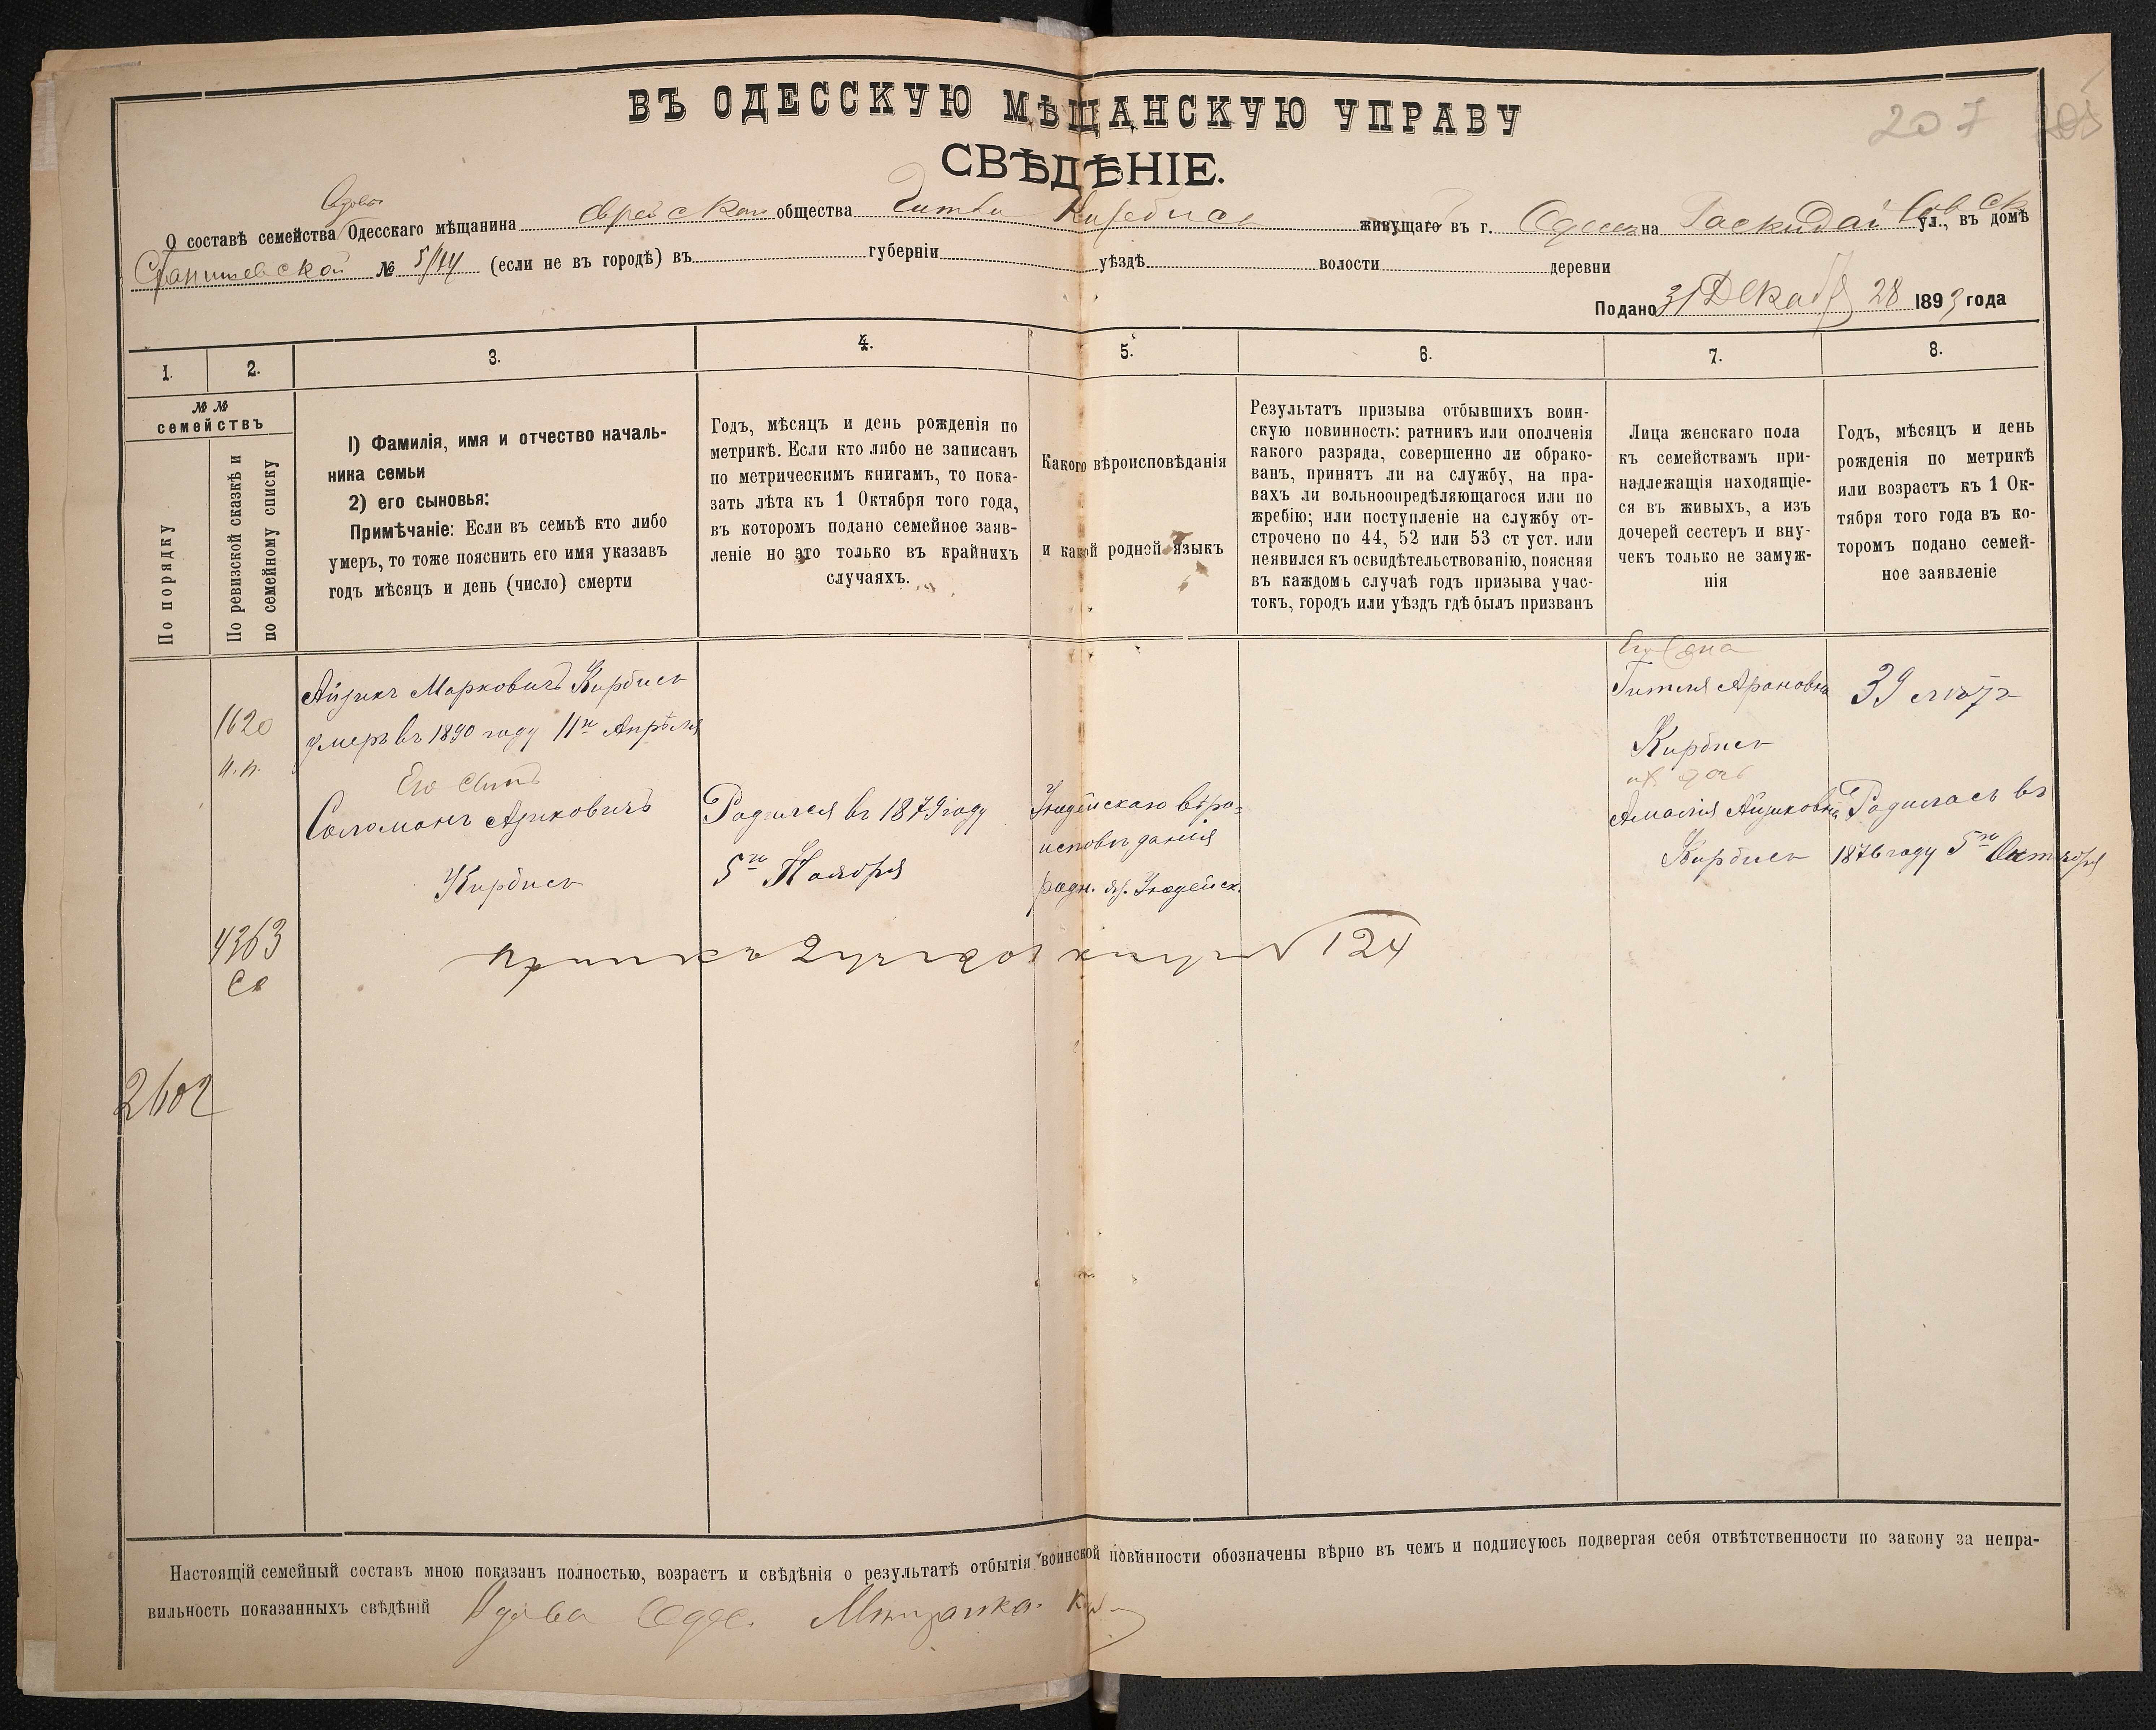 207
ВЪ ОДЕССКУЮ МѢЩАНСКУЮ УПРАВУ
СВѢДѢНІЕ.
О составѣ семейства Одесскаго мѣщанина еврейскаго общества живущаго въ г. на ул., въ домѣ
№ (если не въ городѣ) въ губерніи уѣздѣ волости деревни
Подано 31 Декабря 1893 года
1. 2. 3. 4. 5. 6. 7. 8.
№ №
семействъ
По порядку
По ревизской сказкѣ и
по семейному списку
1) Фамилія, имя и отчество началь-
ника семьи
2) его сыновья:
Примѣчаніе: Если въ семьѣ кто либо
умеръ, то тоже пояснить его имя указавъ
годъ мѣсяцъ и день (число) смерти
Годъ, мѣсяцъ и день рожденія по
метрикѣ. Если кто либо не записанъ
по метрическимъ книгамъ, то пока-
зать лѣта къ 1 Октября того года,
въ которомъ подано семейное заяв-
леніе но это только въ крайнихъ
случаяхъ.
Какого вѣроисповѣданія
и какой родной языкъ
Результатъ призыва отбывшихъ воин-
скую повинность: ратникъ или ополченія
какого разряда, совершенно ли обрако-
ванъ, принятъ ли на службу, на пра-
вахъ ли вольноопредѣляющагося или по
жребію; или поступленіе на службу от-
строчено по 44, 52 или 53 ст уст. или
неявился къ освидѣтельствованію, поясняя
въ каждомъ случаѣ годъ призыва учас-
токъ, городъ или уѣздъ гдѣ былъ призванъ
Лица женскаго пола
къ семействамъ при-
надлежащія находящіе-
ся въ живыхъ, а изъ
дочерей сестеръ и вну-
чекъ только не замуж-
нія
Годъ, мѣсяцъ и день
рожденія по метрикѣ
или возрастъ къ 1 Ок-
тября того года въ ко-
торомъ подано семей-
ное заявленіе
1620
н.п.
4363
2602
Айзикъ Марковичъ Кирбисъ
умеръ въ 1890 году 11го Апрѣля
Его сынъ
Соломонъ Азиковичъ
Кирбисъ
Родился въ 1879 году
5го Ноября
Іюдейскаго вѣро-
исповѣданія
родн. яз. Іюдейск.
124
Его жена
Гитля Арановна
Кирбисъ
39 лѣтъ
их дочь
Амалія Айзиковна
Кирбисъ
Родилась въ
1876 году 5го Октября
Настоящій семейный составъ мною показанъ полностью, возрастъ и свѣдѣнія о результатѣ отбытія воинской повинности обозначены вѣрно въ чемъ и подписуюсь подвергая себя отвѣтственности по закону за непра-
вильность показанныхъ свѣдѣній Вдова Одес. Мѣщанка